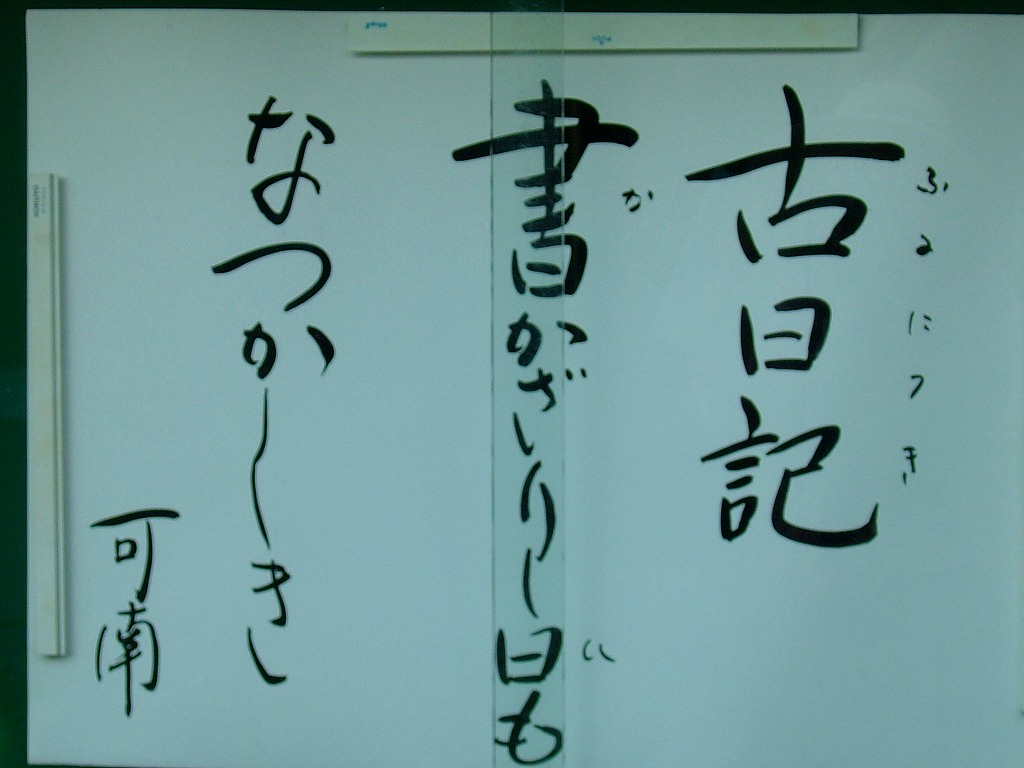 古日記
ふるにつき
書かざりし日も
か
ひ
なつかしき
可南